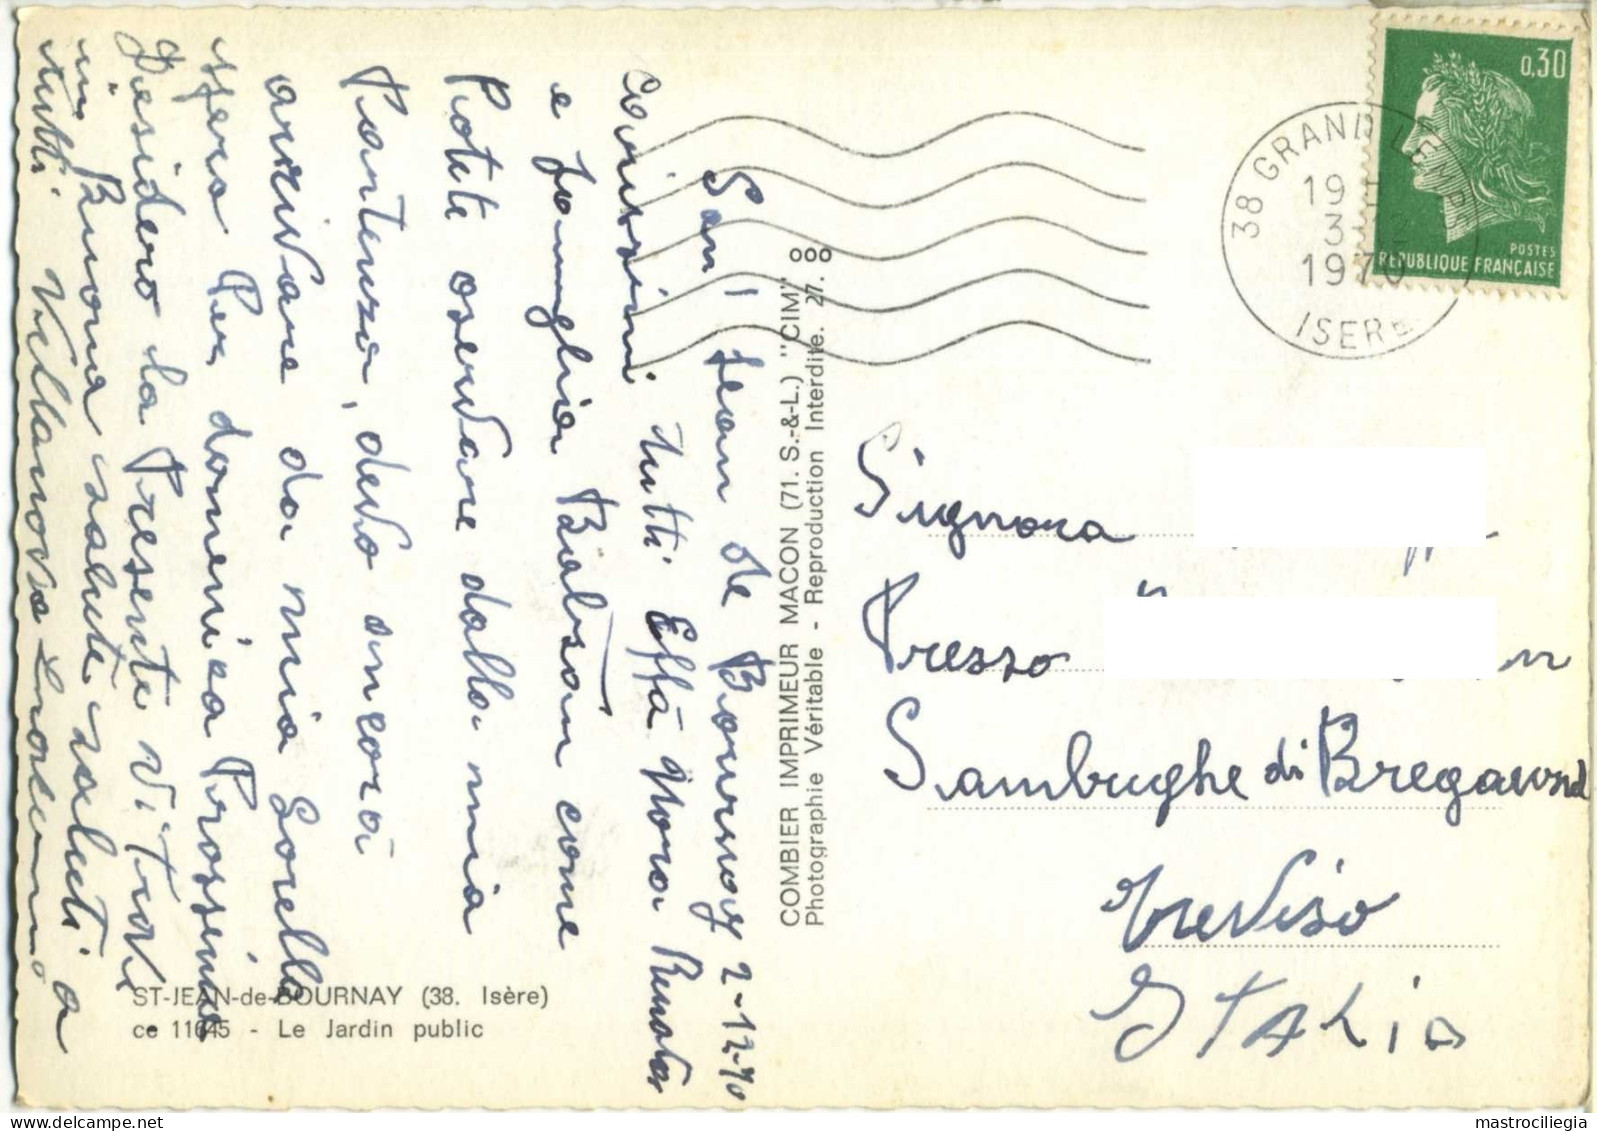 San Jean de Bournay 2-12-70
Carissimi tutti Effa Nora Renato
e famiglia Balsan come
Potete osservare dalla mia
Partenza, devo ancora
arrivare da mia Sorella
spero Per domenica Prossima
Desidero la Presente Vi trovi
in Buona salute saluti a
tutti Villanova
COMBIER IMPRIMEUR MACON (71. S.-&-L.) "CIM"
Photographie Véritable - Reproduction Interdite. 27.
ooo
ST-JEAN-de-BOURNAY (38. Isère)
ce 11645 - Le Jardin public
0,30
POSTES
REPUBLIQUE FRANÇAISE
38 GRAND LEMPS
19 H
3 12
1970
ISERE
Signora
Presso
Sambughe di Preganziol
Treviso
ITALIA
mastrociliegia